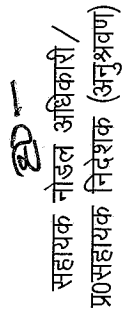 सहायक नोडल अधिकारी/
प्र०सहायक निदेशक (अनुश्रवण)